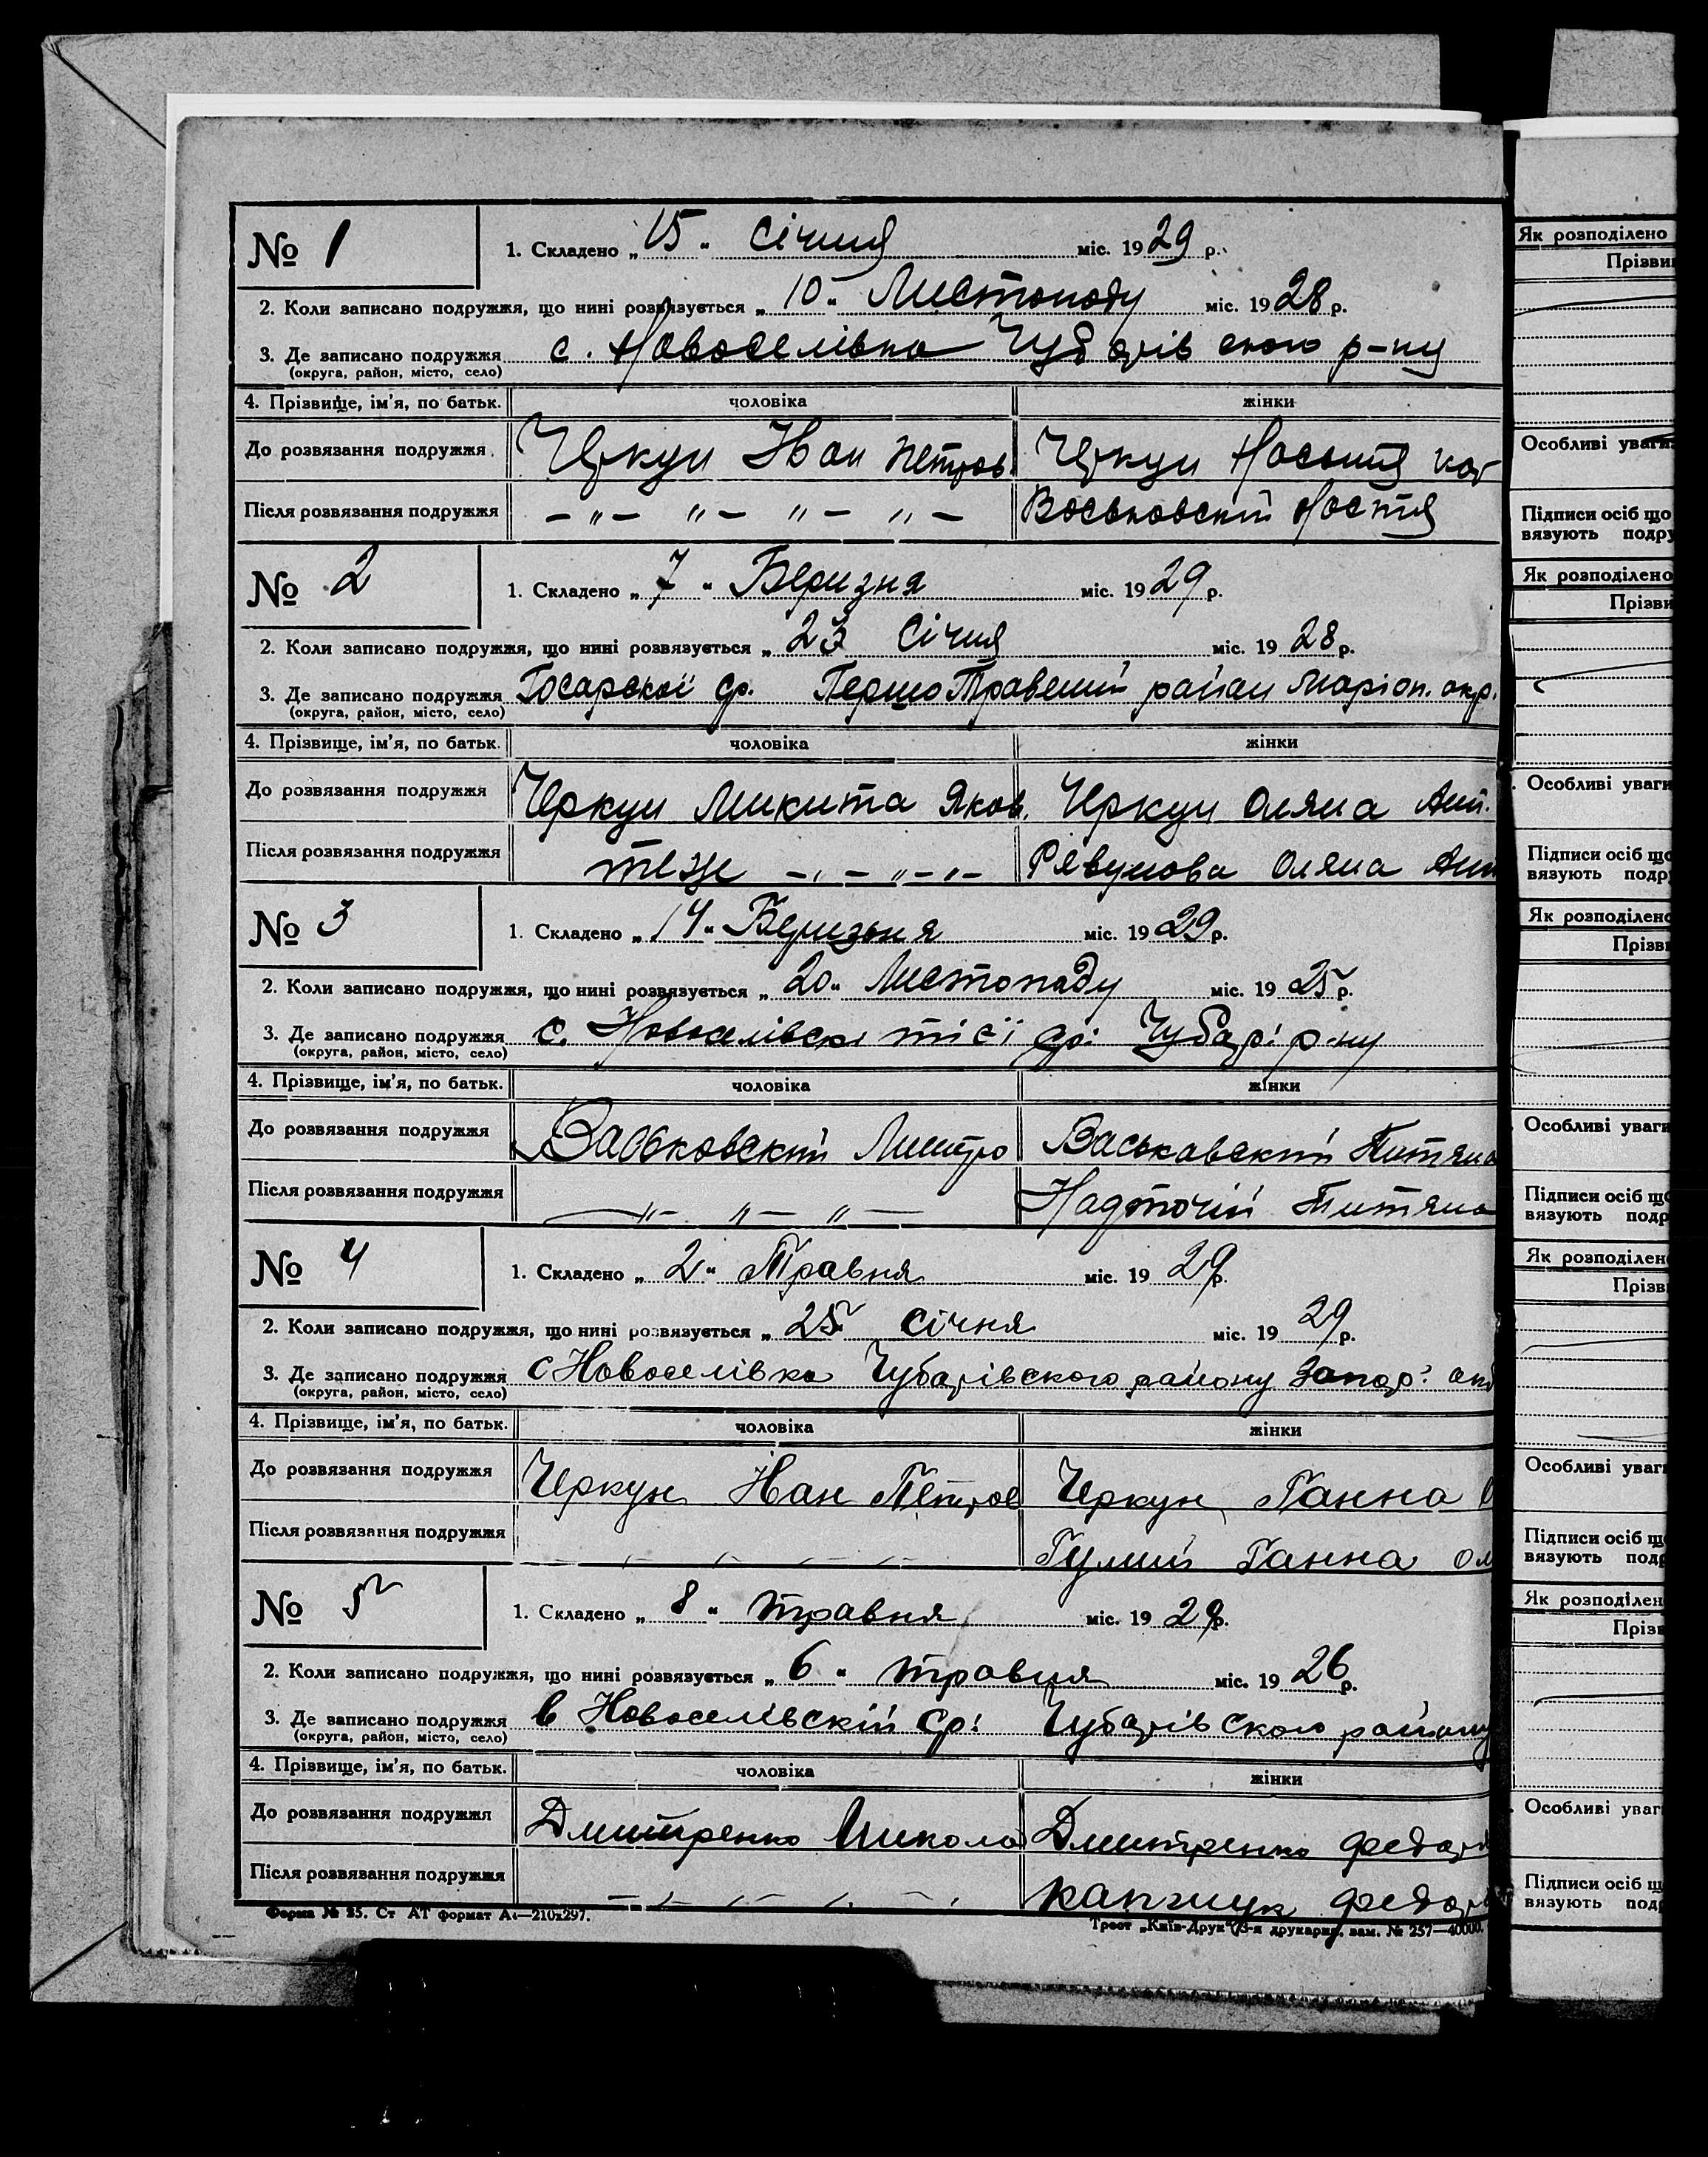 № 1
1. Складено „ 15 " Січня міс. 1929 р.
2. Коли записано подружжя, що нині розвязується „ 10 " Листопаду міс. 1928 р.
3. Де записано подружжя с. Новоселівка Чубарівського р-ну
(округа, район, місто, село)
4. Прізвище, ім'я, по батьк. чоловіка жінки
До розвязання подружжя Черкун Иван Петров. Черкун Насьтя
Після розвязання подружжя – „ – „ – „ – „ – Воськовскій Настя
№ 2
1. Складено „ 7 " Березня міс. 1929 р.
2. Коли записано подружжя, що нині розвязується „ 23 Січня міс. 1928 р.
3. Де записано подружжя ср. ПершоТравений район Маріоп. окр.
(округа, район, місто, село)
4. Прізвище, ім'я, по батьк. чоловіка жінки
До розвязання подружжя Черкун Микита Яков. Черкун Оляна Ант.
Після розвязання подружжя теж – „ – „ – „ – Рявунова Оляна Ант
№ 3
1. Складено „ 14 " Березьня міс. 1929 р.
2. Коли записано подружжя, що нині розвязується „ 20 " Листопаду міс. 1925 р.
3. Де записано подружжя с. тієї ср: Чубарі р-ну
(округа, район, місто, село)
4. Прізвище, ім'я, по батьк. чоловіка жінки
До розвязання подружжя Васьковский Дмитро Васькавский Титяна
Після розвязання подружжя – „ – „ – „ – Надточий Титяна
№ 4
1. Складено „ 2 " Травня міс. 1929 р.
2. Коли записано подружжя, що нині розвязується „ 25 січня міс. 1929 р.
3. Де записано подружжя с Новоселівка Чубарівського району Запор:
(округа, район, місто, село)
4. Прізвище, ім'я, по батьк. чоловіка жінки
До розвязання подружжя Черкун Иван Петров Черкун Ганна
Після розвязання подружжя Гулий Ганна Ол
№ 5
1. Складено „ 8 " травня міс. 1929 р.
2. Коли записано подружжя, що нині розвязується „ 6 " травня міс. 1926 р.
3. Де записано подружжя в Новоселівскій ср: Чубарівського району
(округа, район, місто, село)
4. Прізвище, ім'я, по батьк. чоловіка жінки
До розвязання подружжя Дмитренко Микола Дмитренко Федора
Після розвязання подружжя Капчук Федора
Форма № 25. Ст АТ формат А4—210х297.
Трест „Київ-Друк" 3-я друкарня, зам. № 257—40000.
Як розподілено
Прізви
Особливі уваги
Підписи осіб що
вязують подру
Як розподілено
Прізви
Особливі уваги
Підписи осіб що
вязують подр
Як розподілено
Прізв
Особливі уваги
Підписи осіб що
вязують подр
Як розподілен
Прізв
Особливі уваги
Підписи осіб що
вязують подр
Як розподілен
Прізв
Особливі уваг
Підписи осіб щ
вязують под